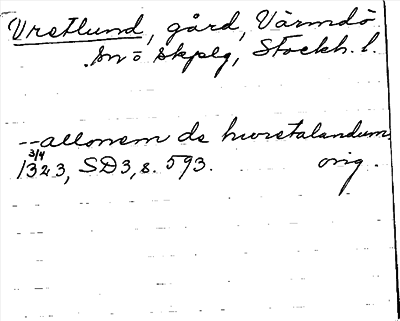 Vretlund, gård, Värmdö
sn o skplg, Stockh. l.
--allonem de hworstalandum
3/4
1323, SD3, s. 593. orig.